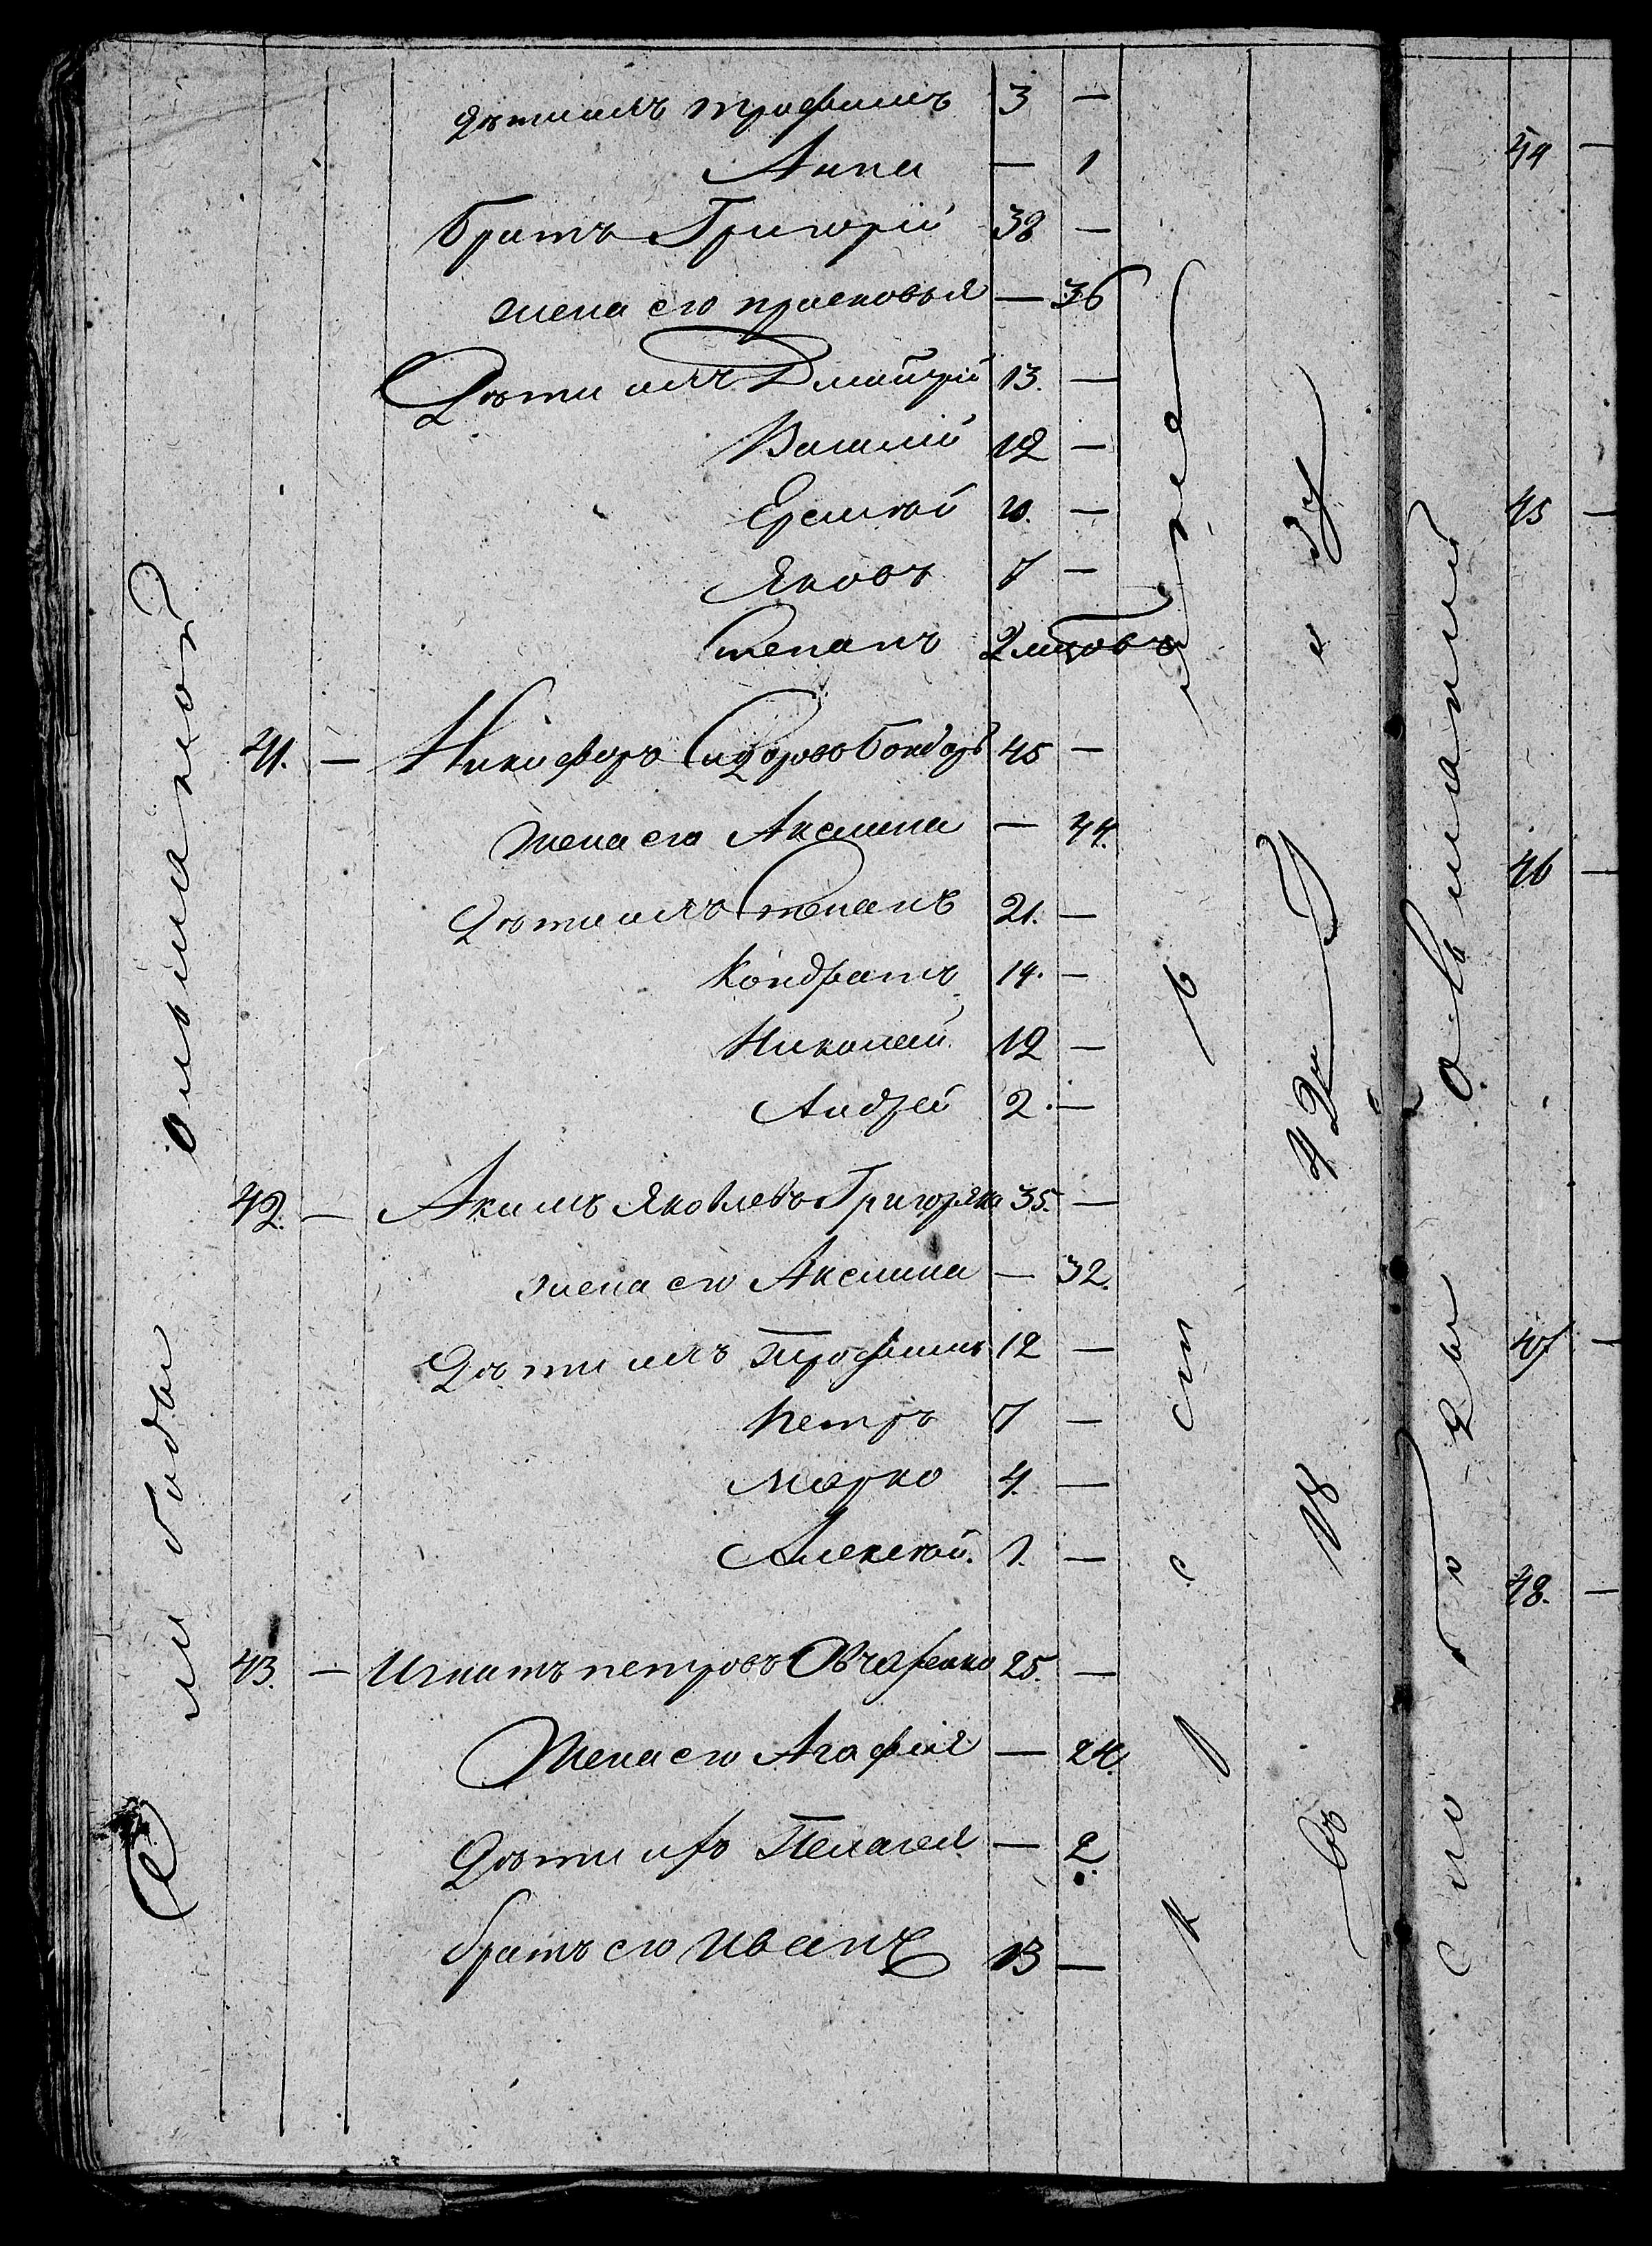 дѣти ихъ трофимъ 3 —
Анна — 1
братъ Григорій 38 —
жена его прасковья — 36
Дѣти ихъ Дмитрій 13. —
Василій 12 —
Еремѣй 10. —
Яковъ 7 —
Степанъ 2 мцовъ
41. — Никифоръ Сидоровъ Бондарь 45 —
жена его Аксинья — 44.
Дѣти ихъ Степанъ 21. —
Кондратъ 14. —
Николай 12 —
Андрей 2. —
42. — Акимъ Яковлевъ Григоренко 35. —
жена его Аксинья — 32.
Дѣти ихъ Трофимъ 12 —
Петръ 7 —
Марко 4. —
Алексѣй. 1. —
43. — Игнатъ петровъ Овчаренко 25. —
Жена его Агафія — 24.
Дѣти ихъ Пелагея — 2.
братъ его Иванъ 13 —
слободы ольшаной
въ 18 42м году
слободы
44 —
45 —
46 —
47 —
48. —